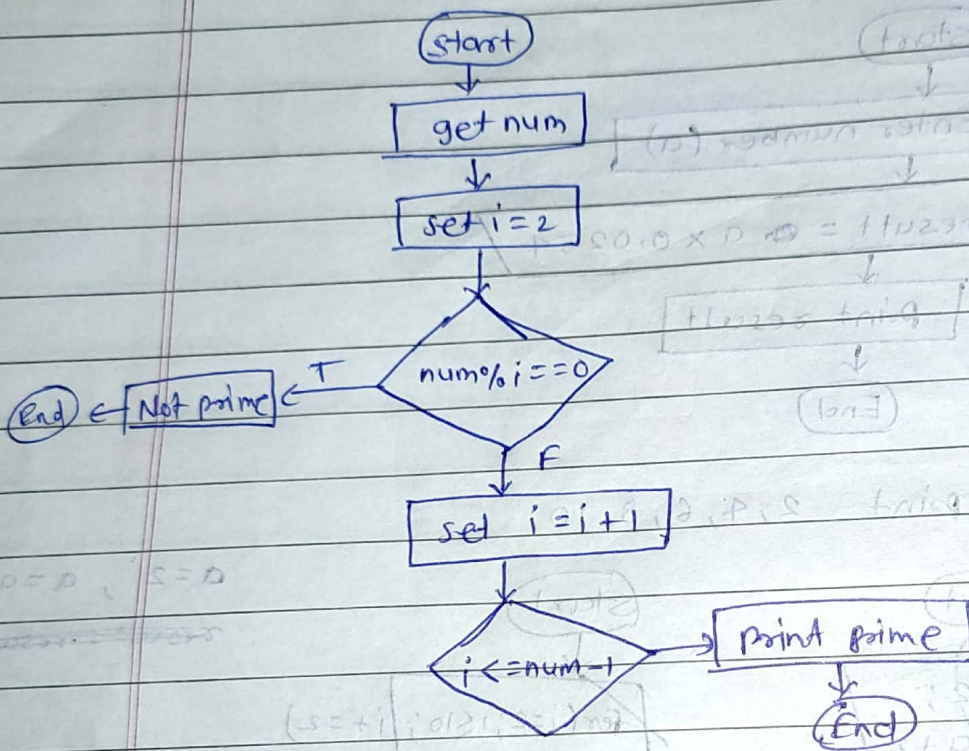 Start
get num
set i = 2
num % i == 0
T
Not prime
End
F
set i = i + 1
i <= num - 1
print prime
End